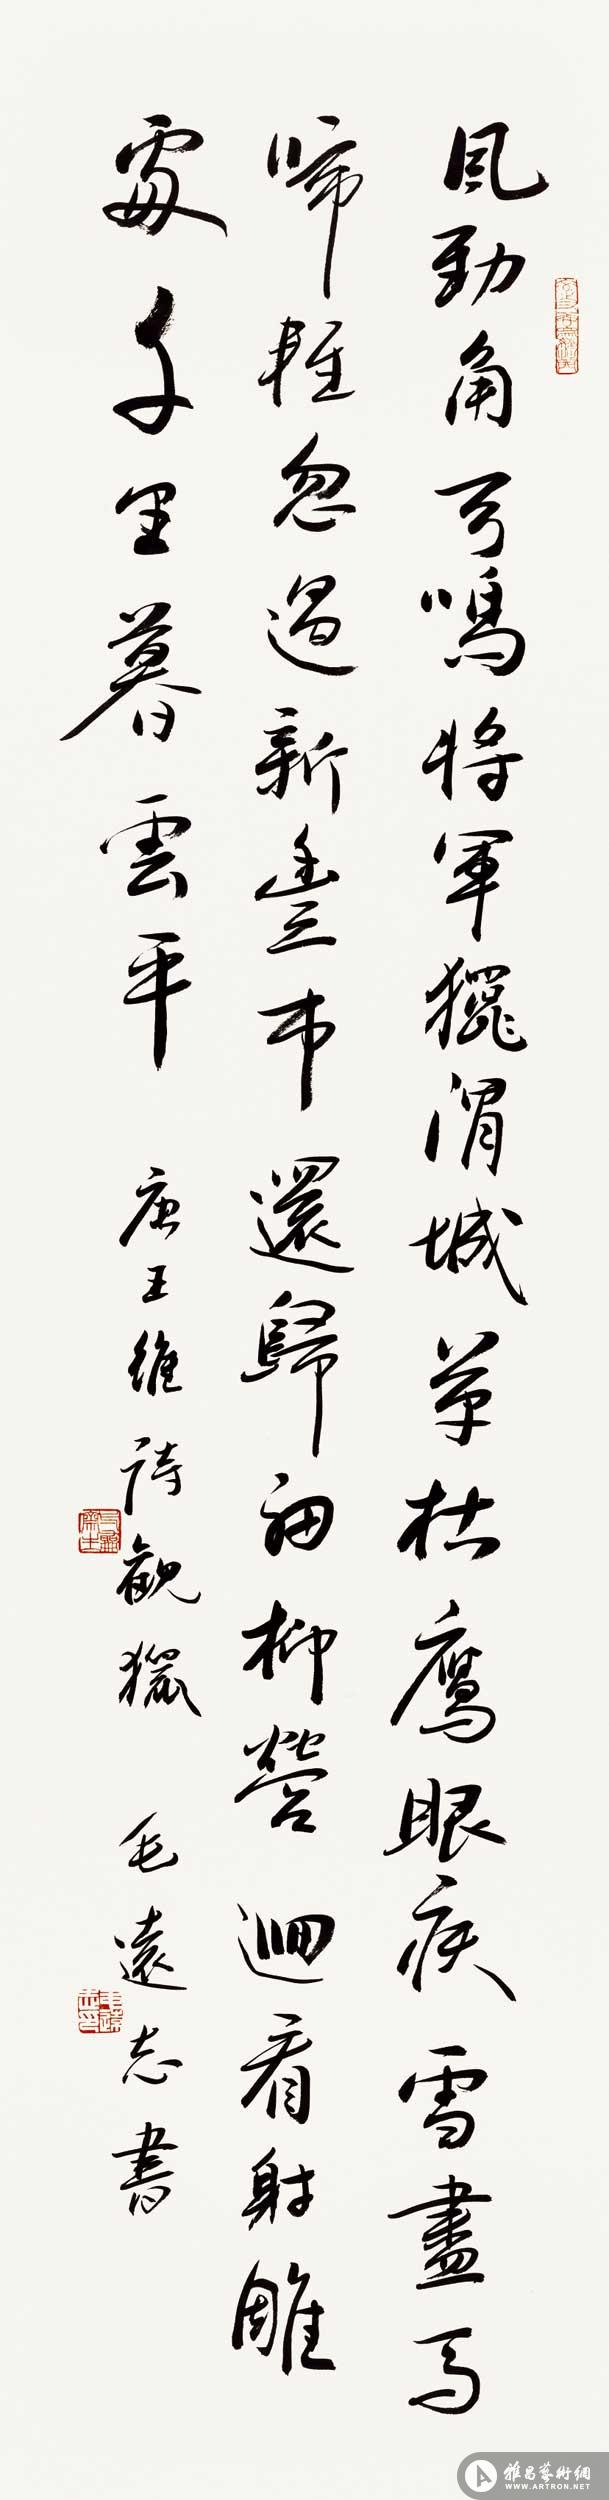 風勁角弓鳴將軍獵渭城草枯鷹眼疾雪盡馬
蹄輕忽過新豐市還歸細柳營迴看射雕
處千里暮雲平 唐王維詩觀獵 毛遠志書
雅昌藝術網
WWW.ARTRON.NET